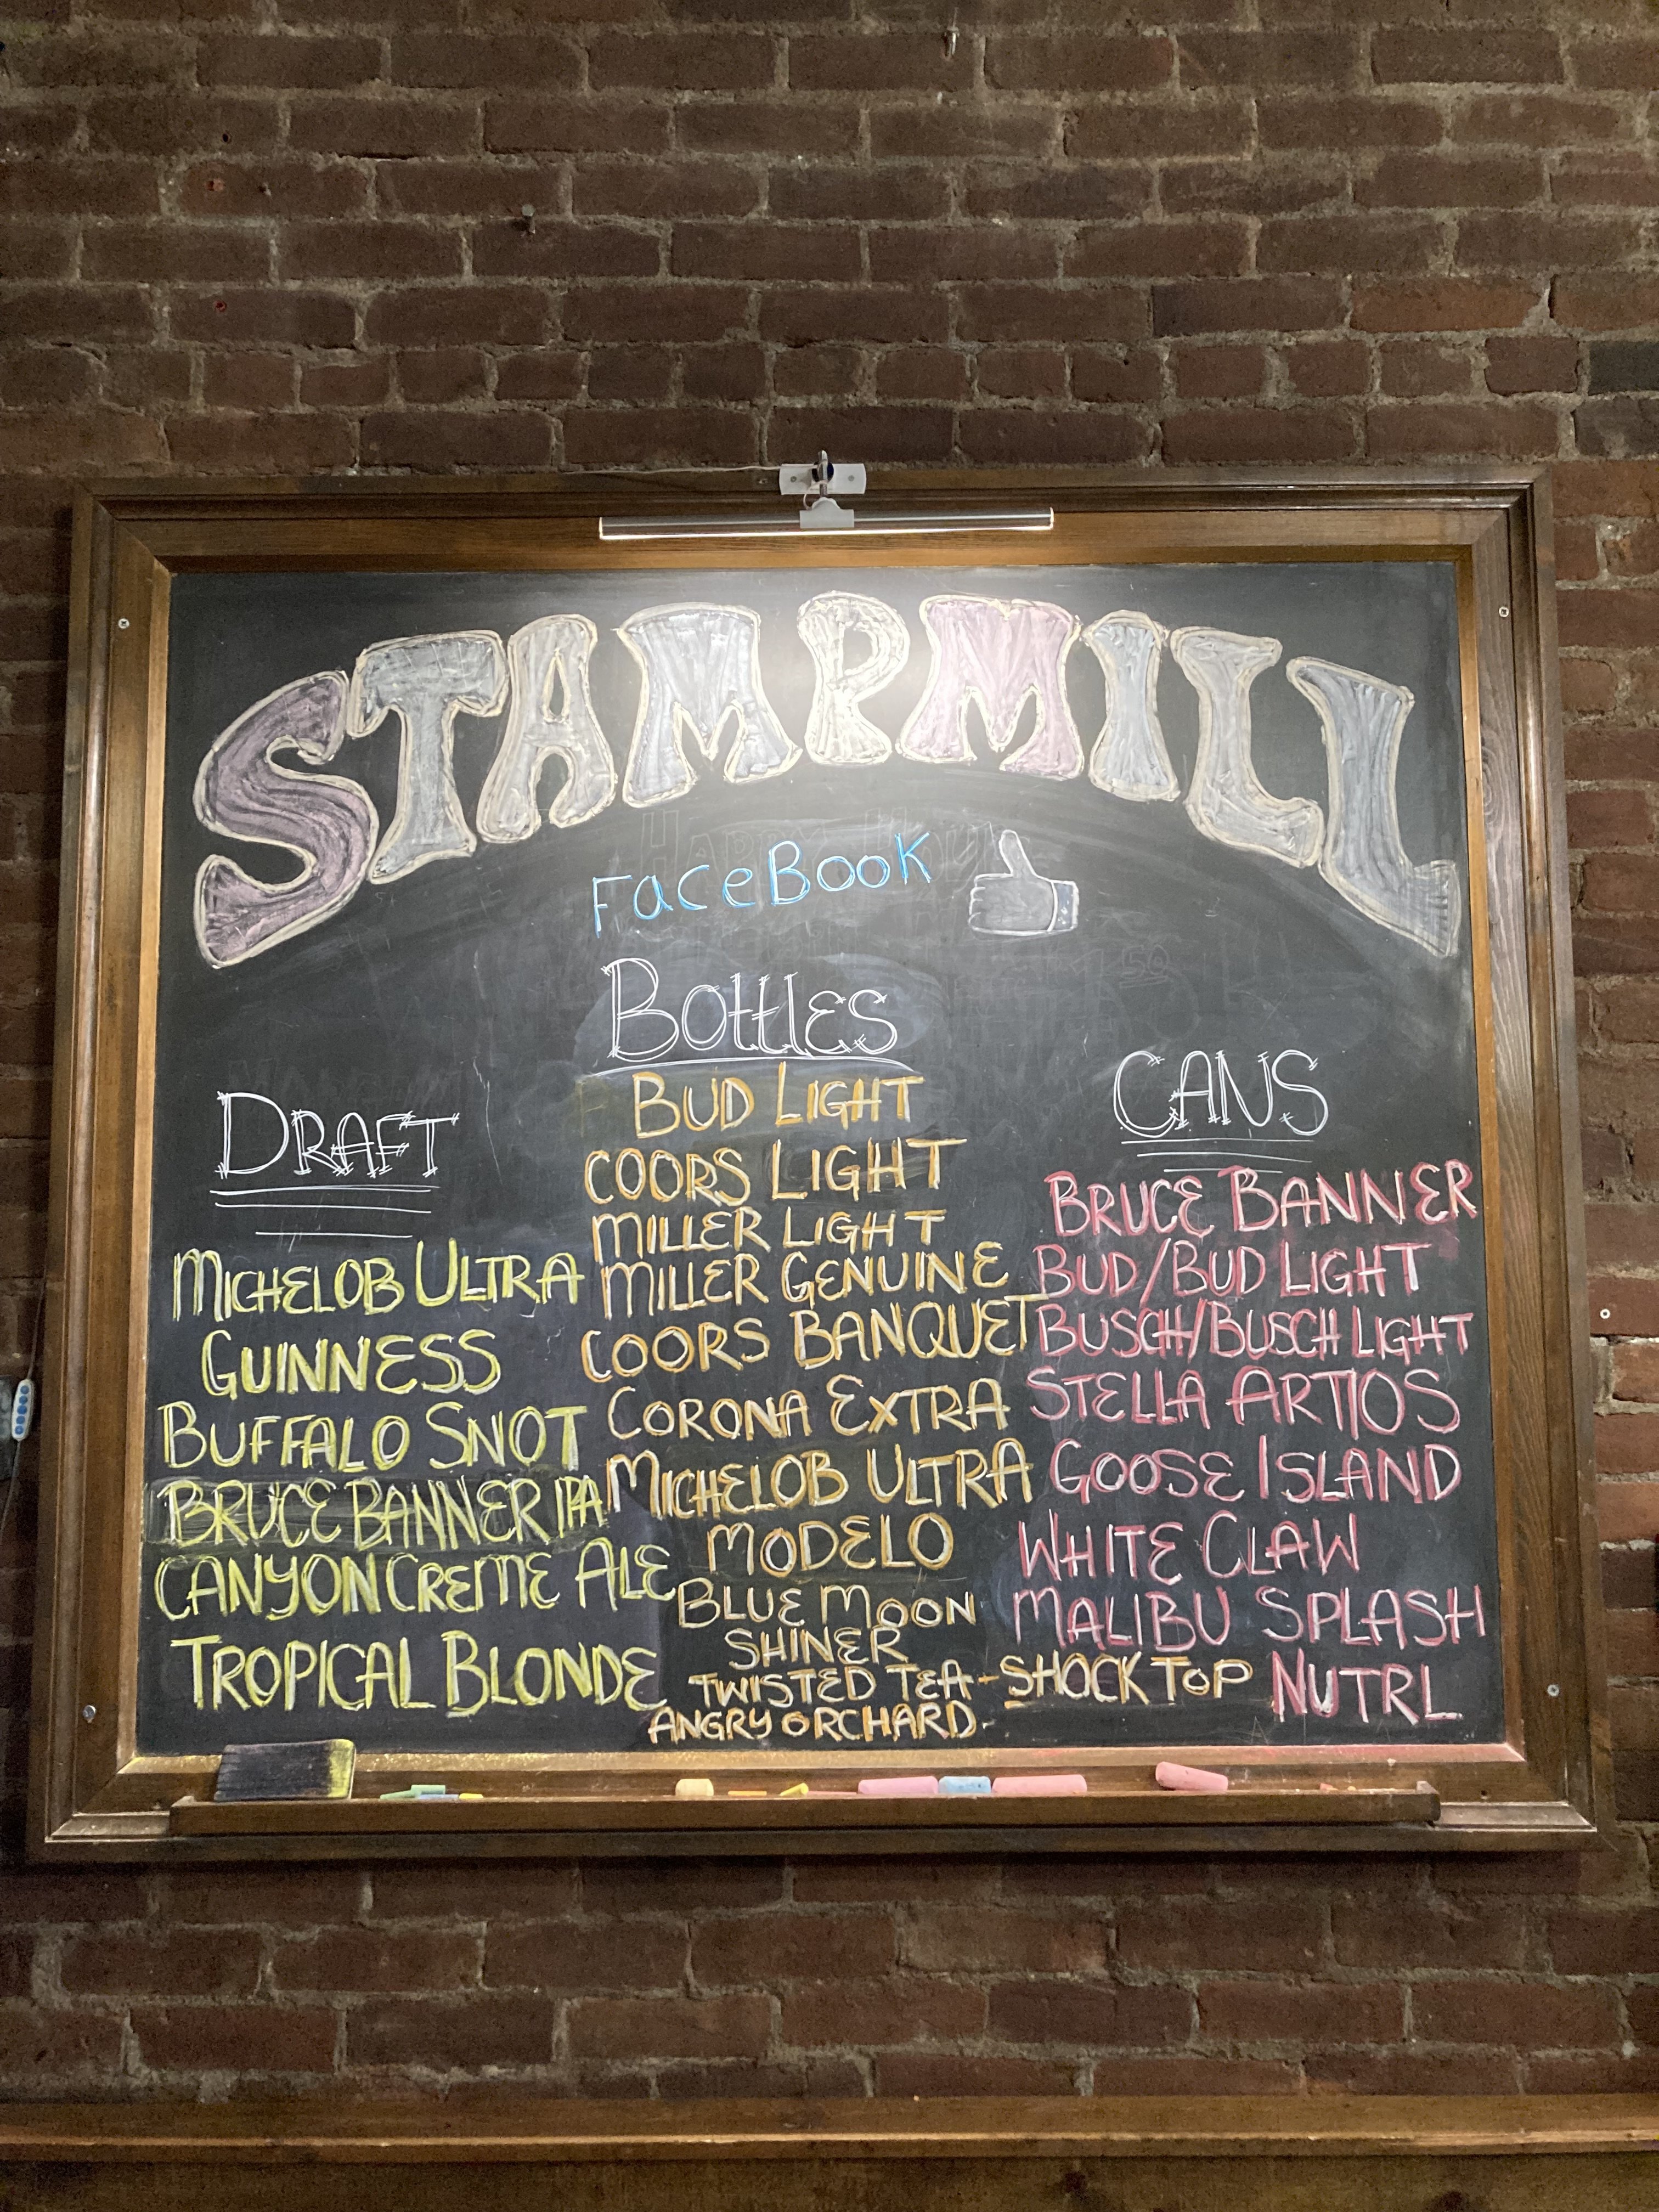 STAMPMILL
FaceBook
Bottles
BUD LIGHT
COORS LIGHT
MILLER LIGHT
MILLER GENUINE
COORS BANQUET
CORONA EXTRA
MICHELOB ULTRA
MODELO
BLUE MOON
SHINER
TWISTED TEA - SHOCK TOP
ANGRY ORCHARD
DRAFT
MICHELOB ULTRA
GUINNESS
BUFFALO SNOT
BRUCE BANNER IPA
CANYON CREME ALE
TROPICAL BLONDE
CANS
BRUCE BANNER
BUD/BUD LIGHT
BUSCH/BUSCH LIGHT
STELLA ARTIOS
GOOSE ISLAND
WHITE CLAW
MALIBU SPLASH
NUTRL